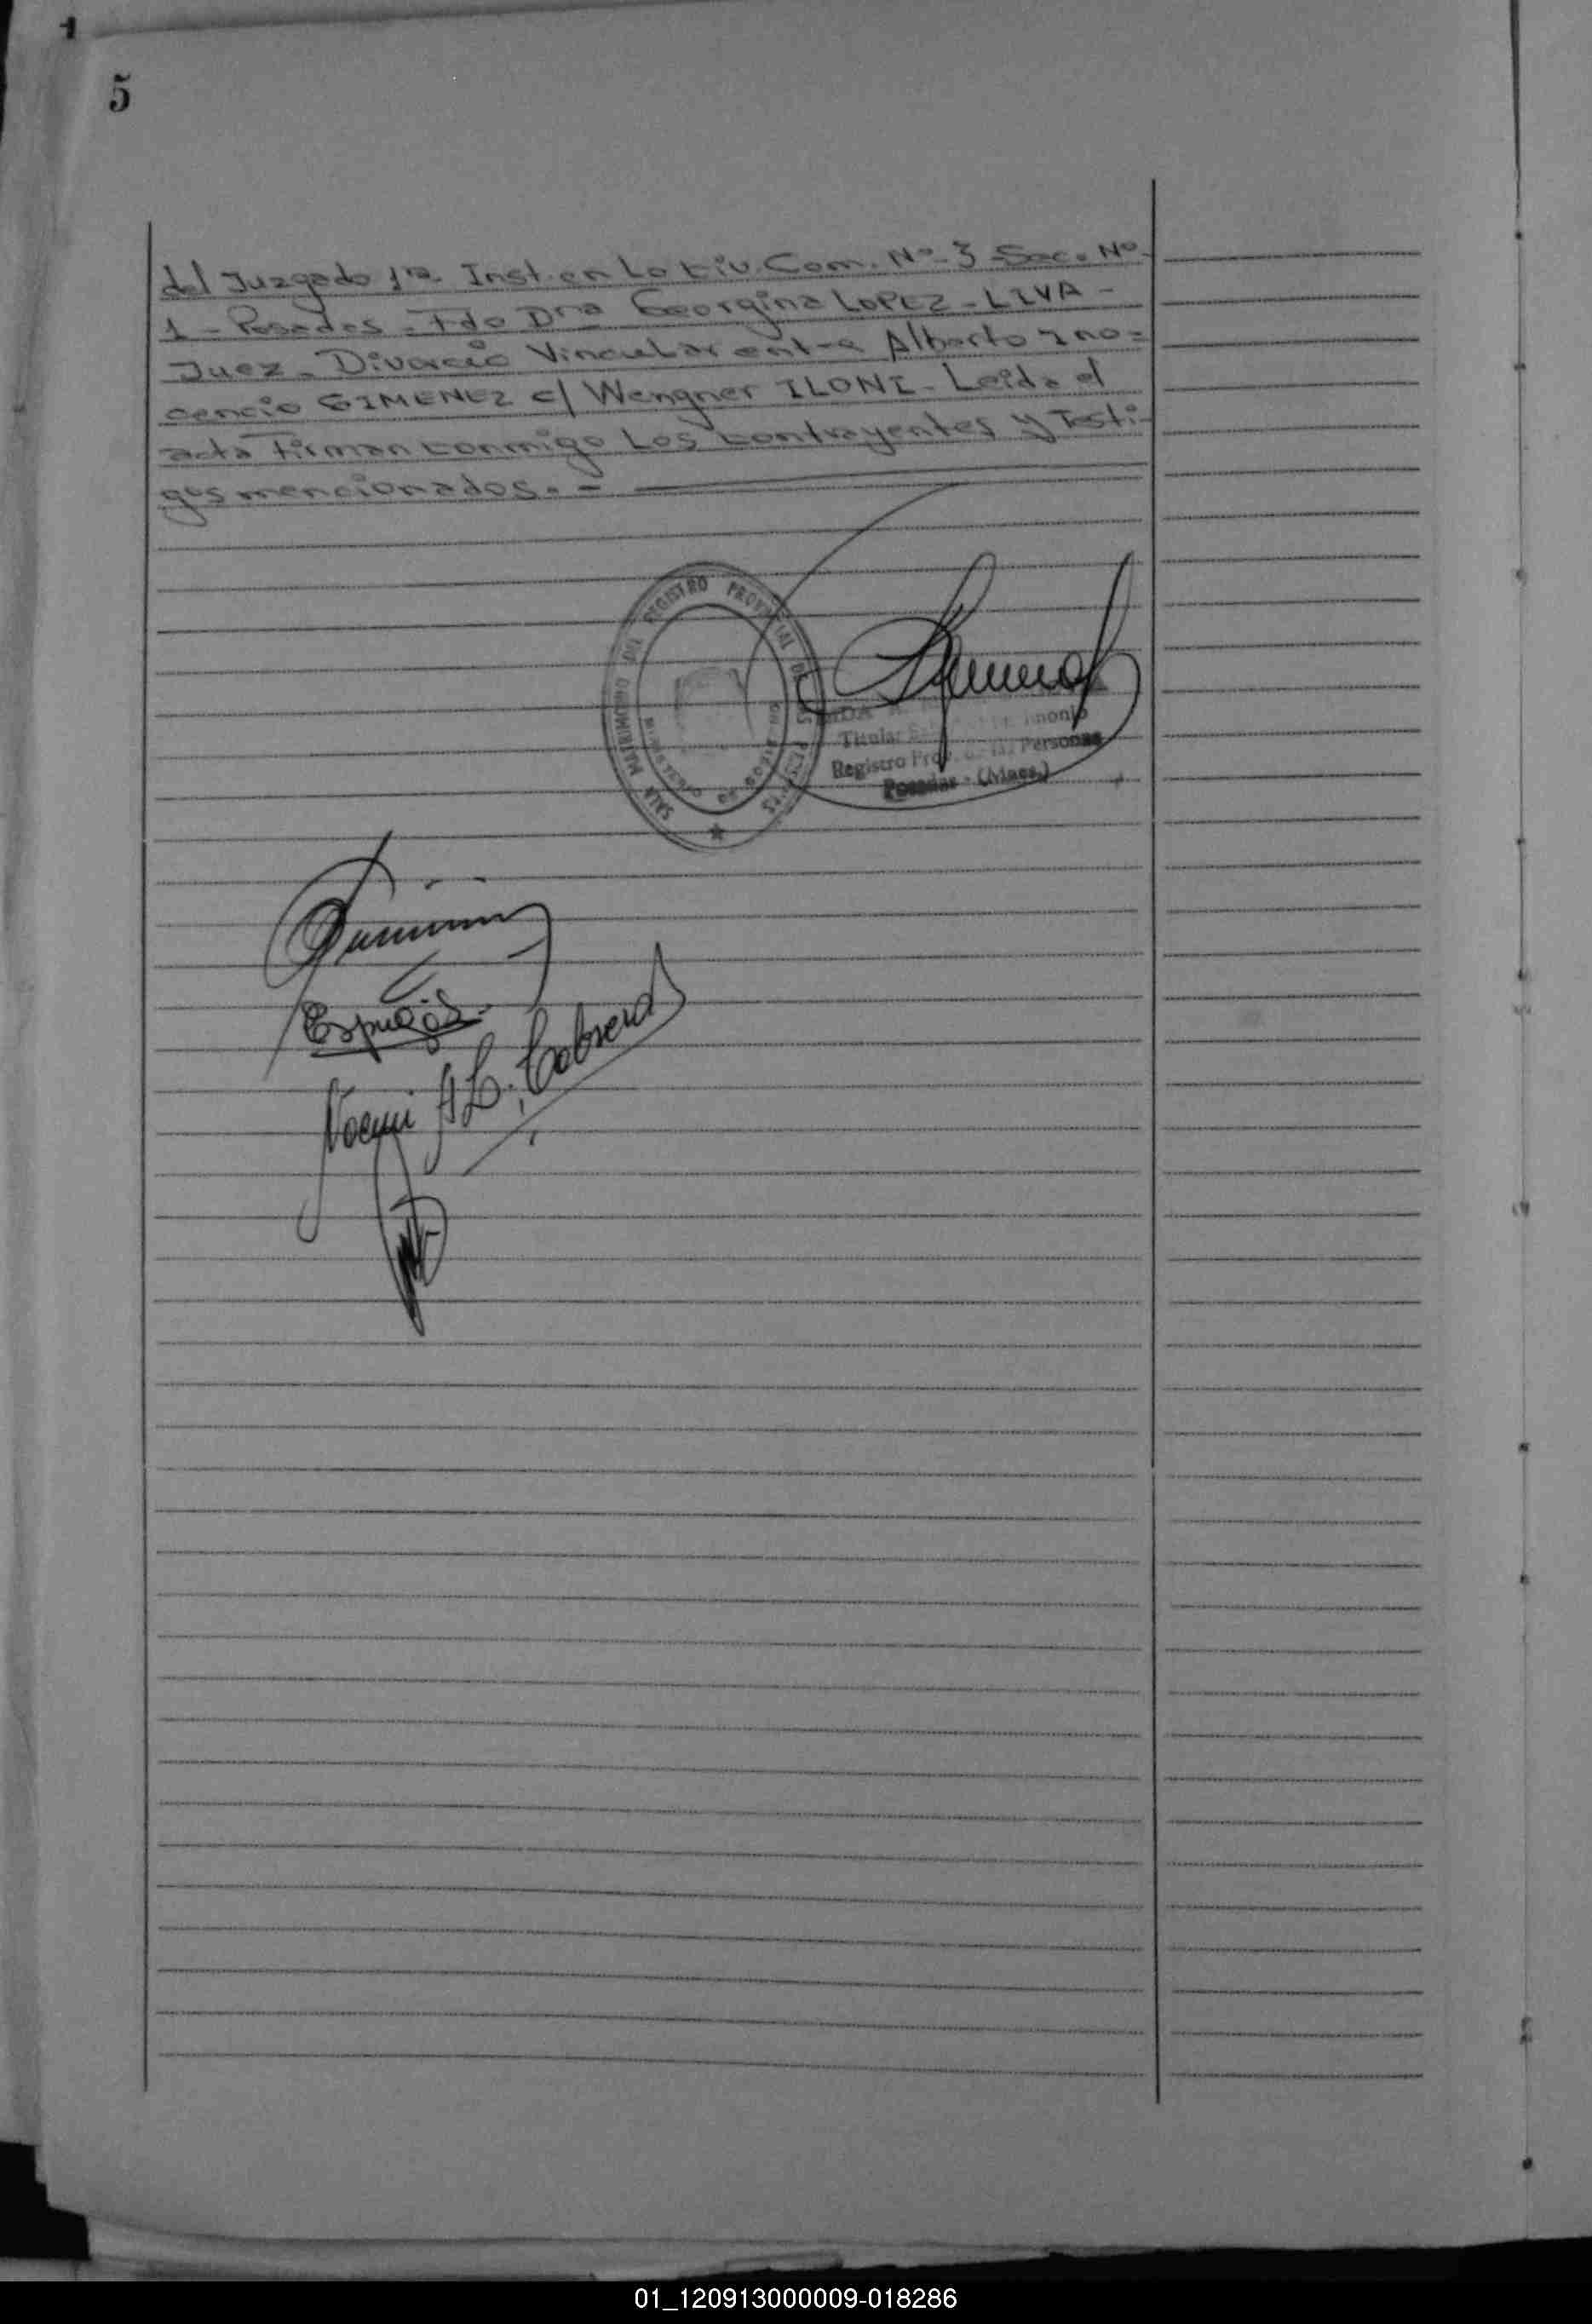 5
del Juzgado 1ra Inst. en Lo Civ. Com. Nº-3 Sec. Nº-
1 - Posadas - Fdo Dra Georgina LOPEZ - LIVA -
Juez - Divorcio Vincular entre Alberto Ino=
cencio GIMENEZ c/ Wengner ILONI - Leida el
acta Firman conmigo Los contrayentes y Testi-
gos mencionados. -
SALA MATRIMONIO DEL REGISTRO PROVINCIAL DE LAS PERSONAS
Titular
Registro Prov. de las Personas
Posadas - (Mnes.)
Noemi A L. Cabrera
01_120913000009-018286